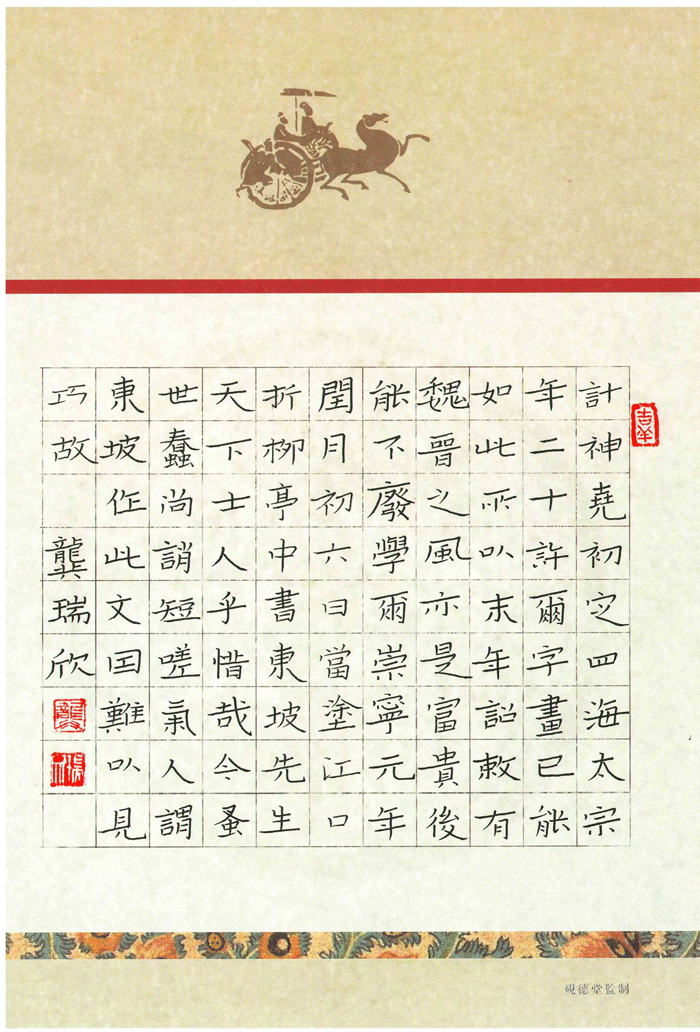 吉羊
計神堯初定四海太宗
年二十許爾字畫已能
如此所以末年詔敕有
魏晉之風亦是富貴後
能不廢學爾崇寧元年
閏月初六日當塗江口
折柳亭中書東坡先生
天下士人乎惜哉今蚤
世蠢尚誚短嗟氣人謂
東坡作此文囙難以見
巧故 龔瑞欣
硯德堂監制